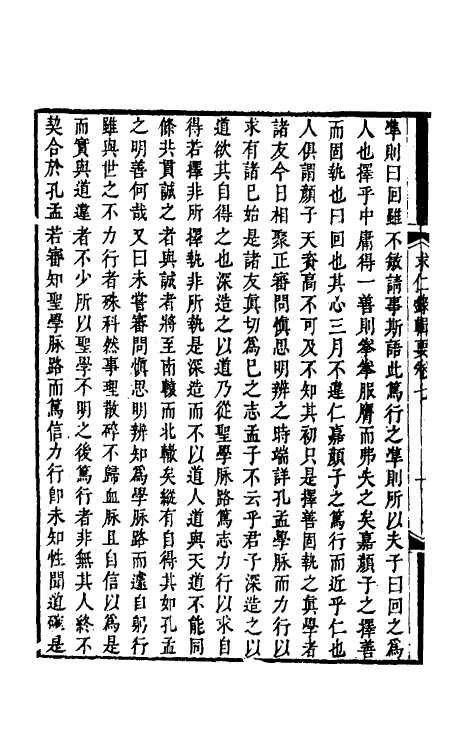 求仁錄輯要卷七
十
準則曰回雖不敏請事斯語此篤行之準則所以夫子曰回之爲
人也擇乎中庸得一善則拳拳服膺而弗失之矣嘉顏子之擇善
而固執也曰回也其心三月不違仁嘉顏子之篤行而近乎仁也
人俱謂顏子天資高不可及不知其初只是擇善固執之眞學者
諸友今日相聚正審問愼思明辨之時端詳孔孟學脉而力行以
求有諸已始是諸友眞切爲已之志孟子不云乎君子深造之以
道欲其自得之也深造之以道乃從聖學脉路篤志力行以求自
得若擇非所擇執非所執是深造而不以道人道與天道不能同
條共貫誠之者與誠者將至南轅而北轍矣縱有自得其如孔孟
之明善何哉又曰未嘗審問愼思明辨知爲學脉路而遽自躬行
雖與世之不力行者殊科然事理散碎不歸血脉且自信以爲是
而實與道違者不少所以聖學不明之後篤行者非無其人終不
契合於孔孟若審知聖學脉路而篤信力行卽未知性聞道確是